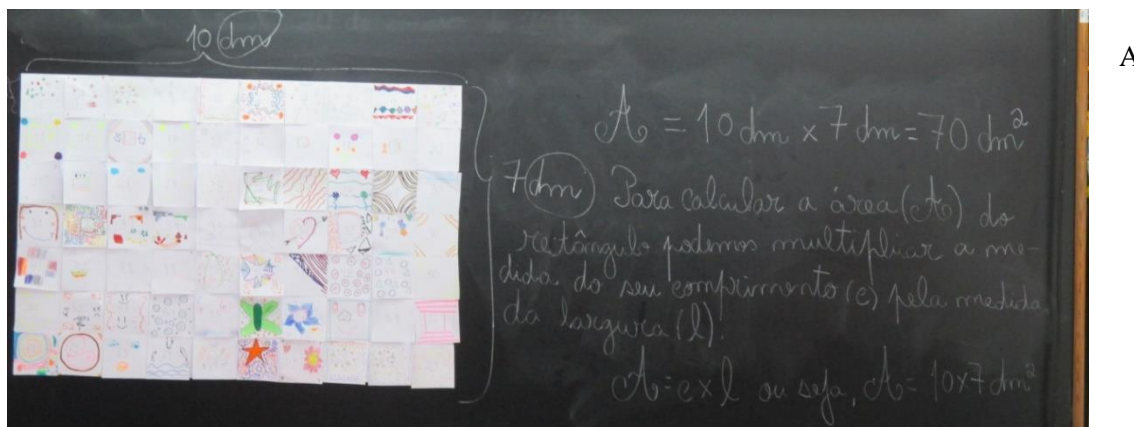 10 dm
A = 10 dm x 7 dm = 70 dm²
7 dm
Para calcular a área (A) do
retângulo podemos multiplicar a me-
dida do seu comprimento (c) pela medida
da largura (l).
A = c x l ou seja, A = 10x7 dm²
A